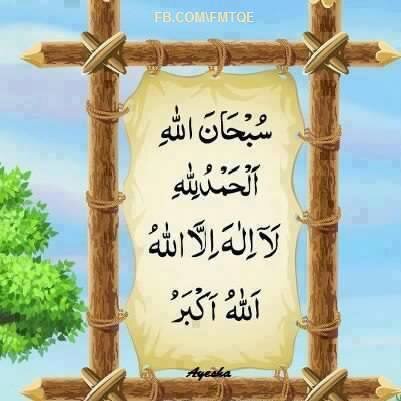 FB.COM\FMTQE
سُبْحَانَ اللّٰهِ
اَلْحَمْدُلِلّٰهِ
لَآ اِلٰهَ اِلَّا اللّٰهُ
اَللّٰهُ اَكْبَرُ
Ayesha